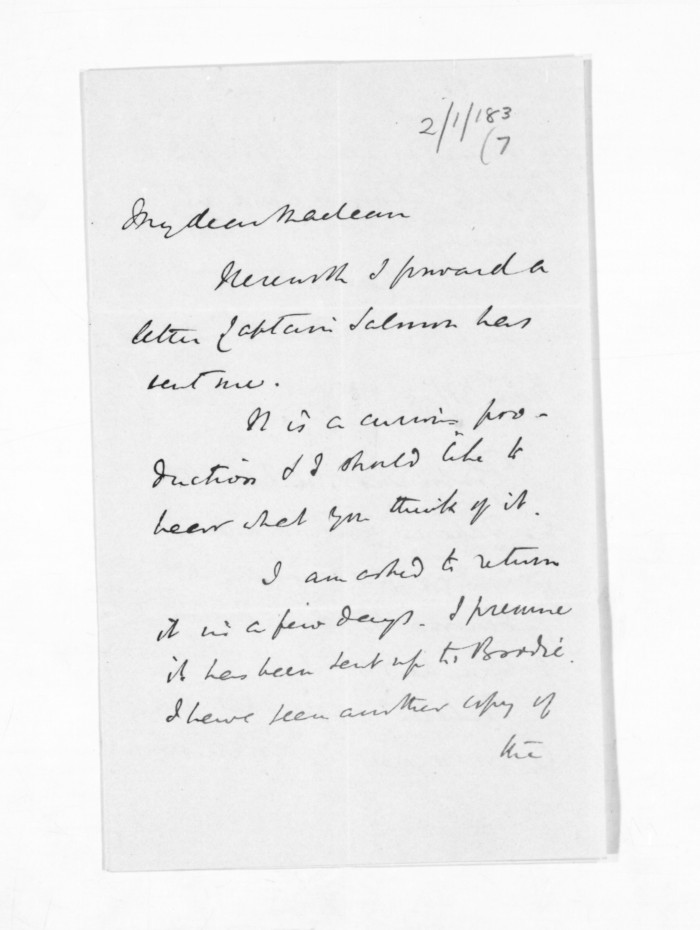 2/1/183
(7
My dear Maclean
Herewith I forward a
letter Captain Salmon has
sent me.
It is a curious pro-
duction & I should like to
hear what you think of it.
I am asked to return
it in a few days. I presume
it has been sent up to Brodie.
I have seen another copy of
the